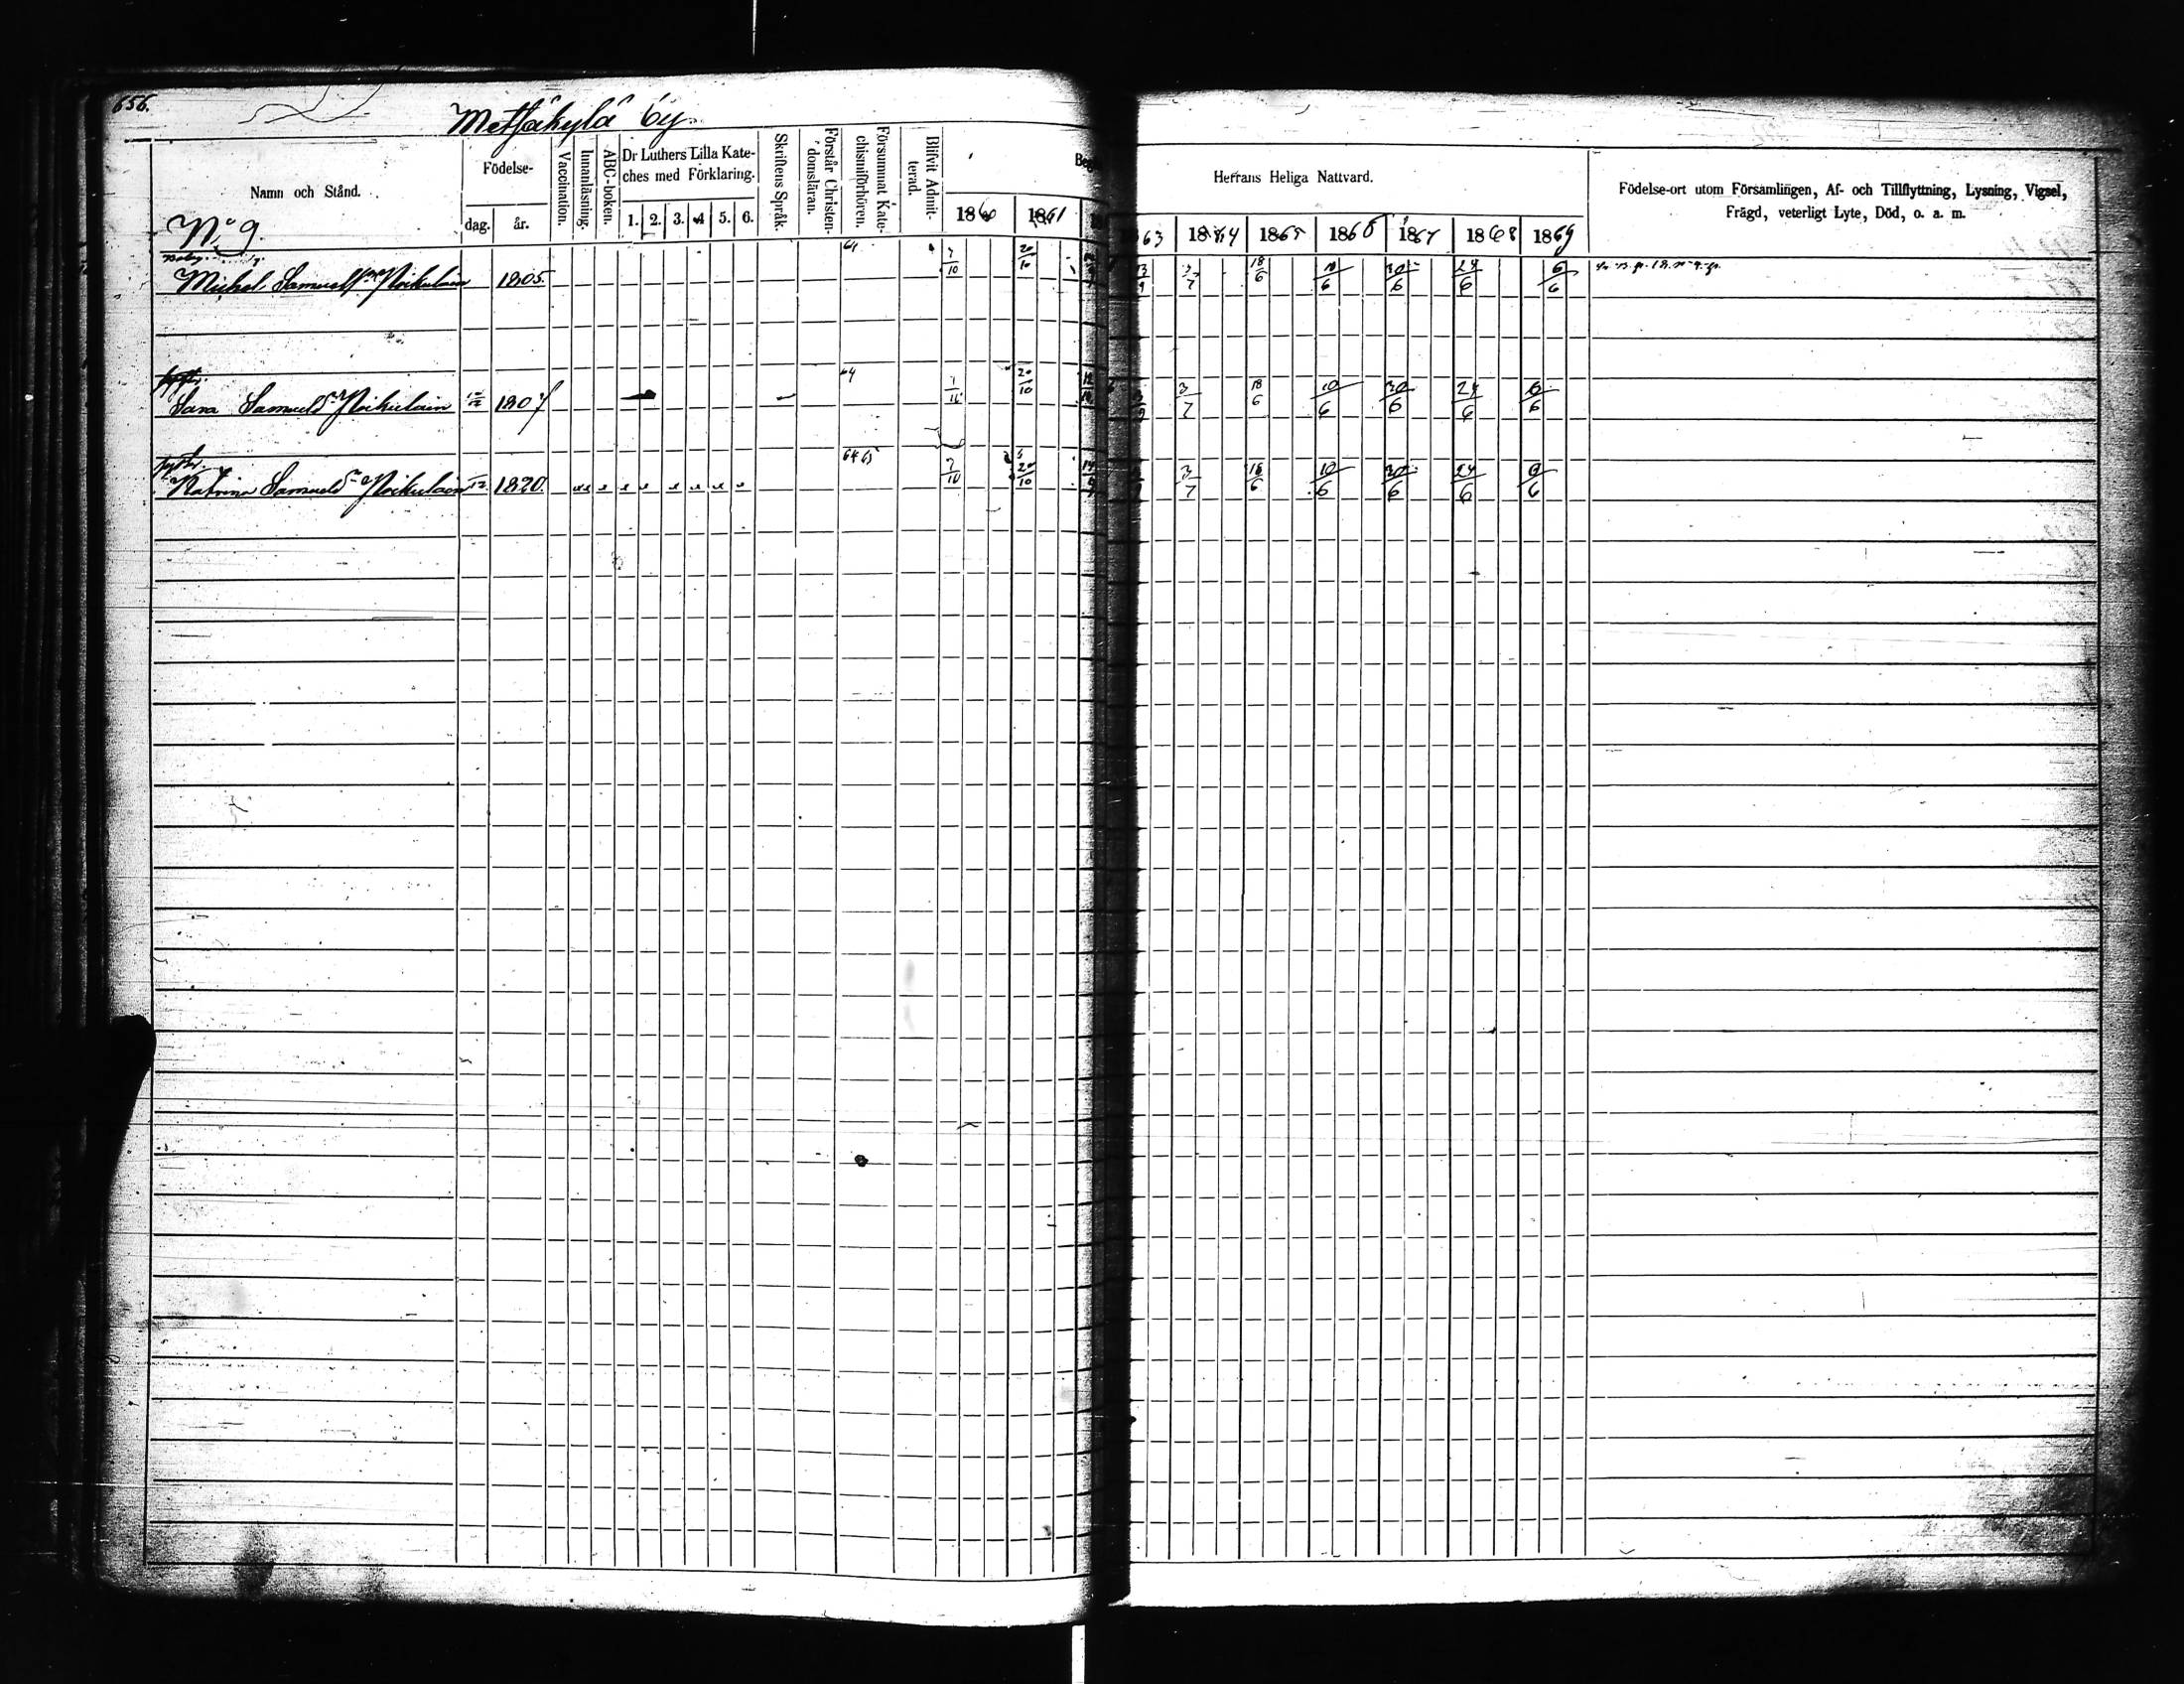 656.
Metsäkylä by
Namn och Stånd.
Födelse-
dag. år.
Vaccination.
Innanläsning.
ABC-boken.
Dr Luthers Lilla Kate-
ches med Förklaring.
1. 2. 3. 4 5. 6.
Skriftens Språk.
Förstår Christen-
domsläran.
Försummat Kate-
chismiförhören.
Blifvit Admit-
terad.
1860 1861
Herrans Heliga Nattvard.
63 1864 1865 1866 1867 1868 1869
Födelse-ort utom Församlingen, Af- och Tillflyttning, Lysning, Vigsel,
Frägd, veterligt Lyte, Död, o. a. m.
No 9.
Michel Samuelsson 1805. 7/10 20/10 3/7 18/6 10/6 30/6 24/6 6/6
syster.
Sara Samuelsdr 1807 64 7/10 20/10 3/7 18/6 10/6 30/6 24/6 6/6
syster.
Katrina Samuelsdr 1820. 64 65 7/10 20/10 3/7 18/6 10/6 30/6 24/6 6/6